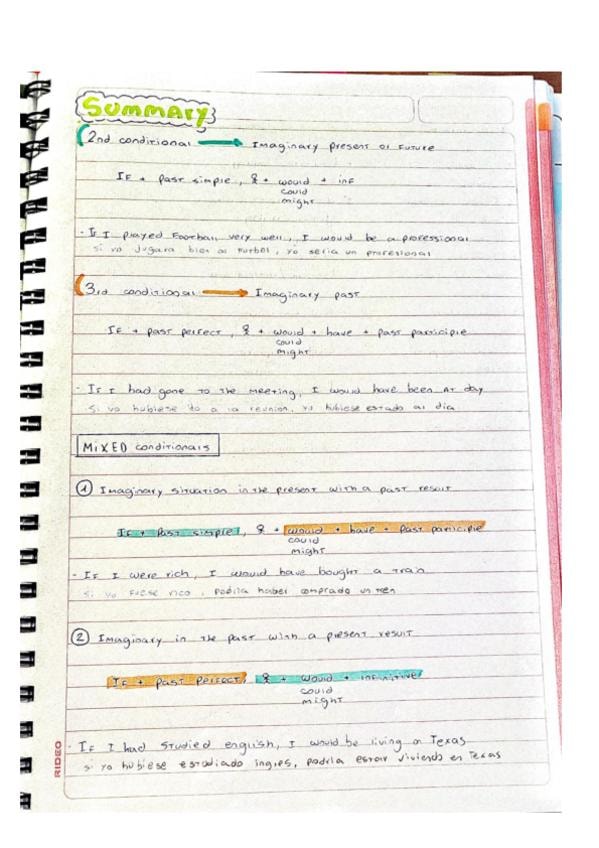 SUMMARY
2nd conditional → Imaginary present or Future
IF + past simple, & + would + inf
could
might
- If I played Football very well, I would be a professional
si yo jugara bien al Futbol, yo seria un profesional
3rd conditional → Imaginary past
IF + past perfect, & + would + have + past participle
could
might
- If I had gone to the meeting, I would have been at day
si yo hubiese ido a la reunion, yo hubiese estado al dia
MIXED conditionals
1 Imaginary situation in the present with a past result
IF + Past simple, & + would + have + Past participle
could
might
- If I were rich, I would have bought a train
si yo fuese rico, podria haber comprado un tren
2 Imaginary in the past with a present result
IF + Past Perfect, & + would + infinitive
could
might
- If I had studied english, I would be living on Texas
si yo hubiese estudiado ingles, podria estar viviendo en Texas
RIDEO